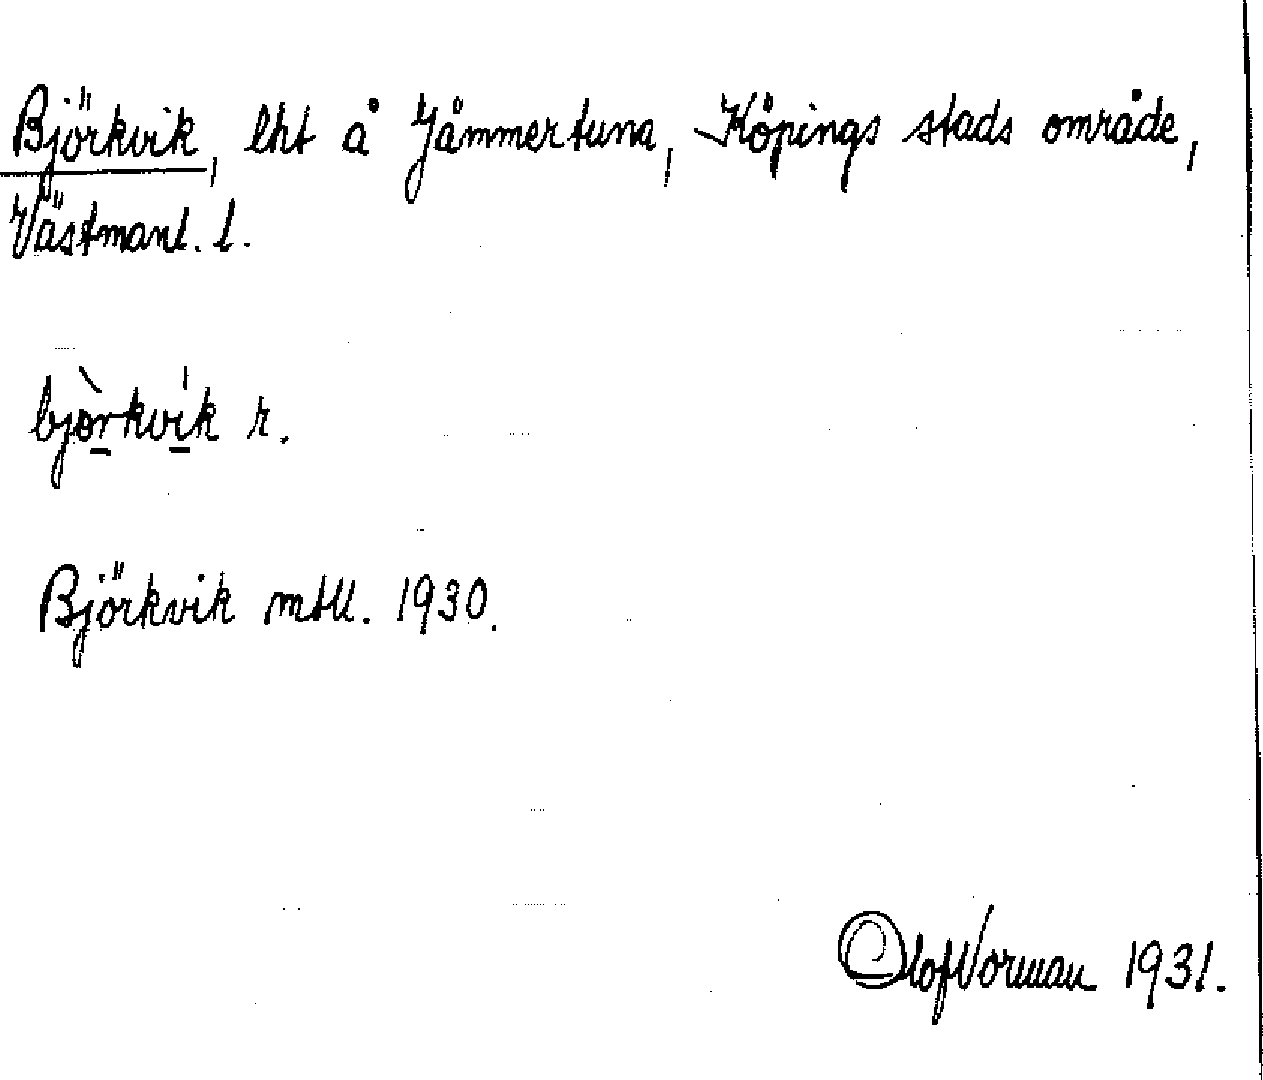 Björkvik, lht å Jåmmertuna, Köpings stads område,
Västmanl. l.
bjòrkvík r.
Björkvik mtll. 1930.
Olof Norman 1931.